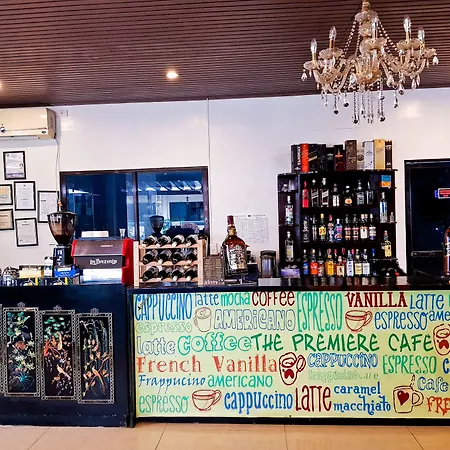 CAPPUCCINO latte mocha COFFEE ESPRESSO VANILLA LATTE
espresso AMERICANO espresso AME
latte Coffee THE PREMIERE CAFE
French Vanilla CAPPUCCINO ESPRESSO
Frappuccino americano frappuccino Cafe
espresso cappuccino LATTE caramel macchiato FRE